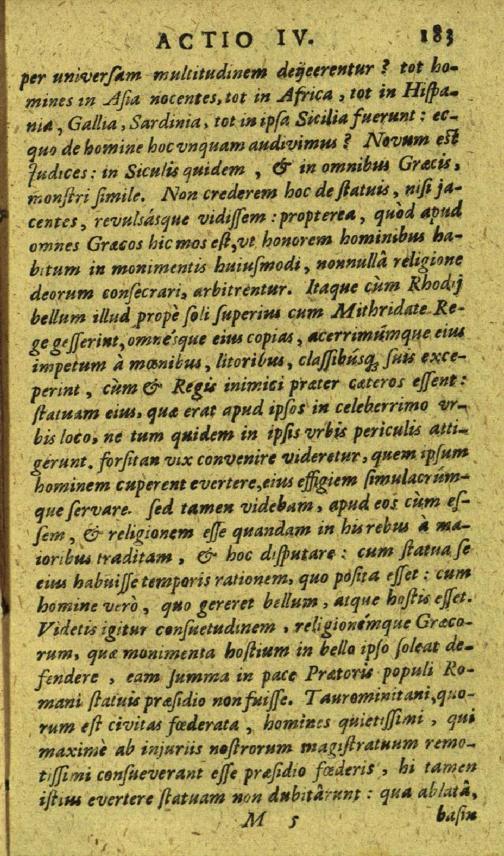 ACTIO IV. 183
per universam multitudinem deijcerentur? tot ho-
mines in Asia nocentes, tot in Africa, tot in Hispa-
nia, Gallia, Sardinia, tot in ipsa Sicilia fuerunt: ec-
quo de homine hoc vnquam audivimus? Novum est
Judices: in Siculis quidem, & in omnibus Græcis,
monstri simile. Non crederem hoc de statuis, nisi ja-
centes, revulsásque vidissem: propterea, quòd apud
omnes Græcos hic mos est, vt honorem hominibus ha-
bitum in monimentis huiusmodi, nonnullâ religione
deorum consecrari, arbitrentur. Itaque cùm Rhodij
bellum illud propè soli superius cum Mithridate Re-
ge gesserint, omnésque eius copias, acerrimúmque eius
impetum à mœnibus, litoribus, classibúsq; suis exce-
perint, cùm & Regis inimici præter cæteros essent:
statuam eius, quæ erat apud ipsos in celeberrimo vr-
bis loco, ne tum quidem in ipsis vrbis periculis atti-
gerunt. forsitan vix convenire videretur, quem ipsum
hominem cuperent evertere, eius effigiem simulacrúm-
que servare. sed tamen videbam, apud eos cùm es-
sem, & religionem esse quandam in his rebus à ma-
ioribus traditam, & hoc disputare: cum statua se
eius habuisse temporis rationem, quo posita esset: cum
homine verò, quo gereret bellum, atque hostis esset.
Videtis igitur consuetudinem, religionémque Græco-
rum, quæ monimenta hostium in bello ipso soleat de-
fendere, eam summa in pace Prætoris populi Ro-
mani statuis præsidio non fuisse. Taurominitani, quo-
rum est civitas fœderata, homines quietissimi, qui
maximè ab injuriis nostrorum magistratuum remo-
tissimi consueverant esse præsidio fœderis, hi tamen
istius evertere statuam non dubitârunt: qua ablatâ,
M 5 basin